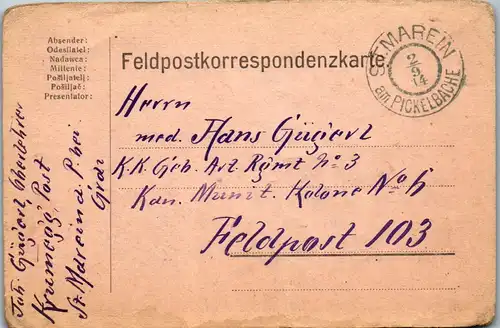 Absender:
Odesílatel:
Nadawca:
Mittente:
Pošiljatelj:
Pošiljač:
Presentator:
Feldpostkorrespondenzkarte
ST. MAREIN
2/5
14
am PICKELBACHE
Herrn
med. Hans Gügerl
K.K. Geb. Art. Rgmt No 3
Kan. Munit. Kolone No 6
Feldpost 103
Joh. Gügerl,
Krumegg, Post
St. Marein a. P. bei
Graz